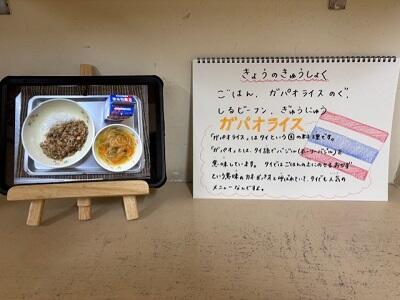 きょうのきゅうしょく
ごはん、ガパオライスのぐ、
しるビーフン、ぎゅうにゅう
ガパオライス
「ガパオライス」はタイという国の料理です。
「ガパオ」とは、タイ語でバジル(ホーリーバジル)を
意味しています。タイではごはんの上にのせるおかず
という意味の
と呼ばれていて、タイでも人気の
メニューなんですよ。